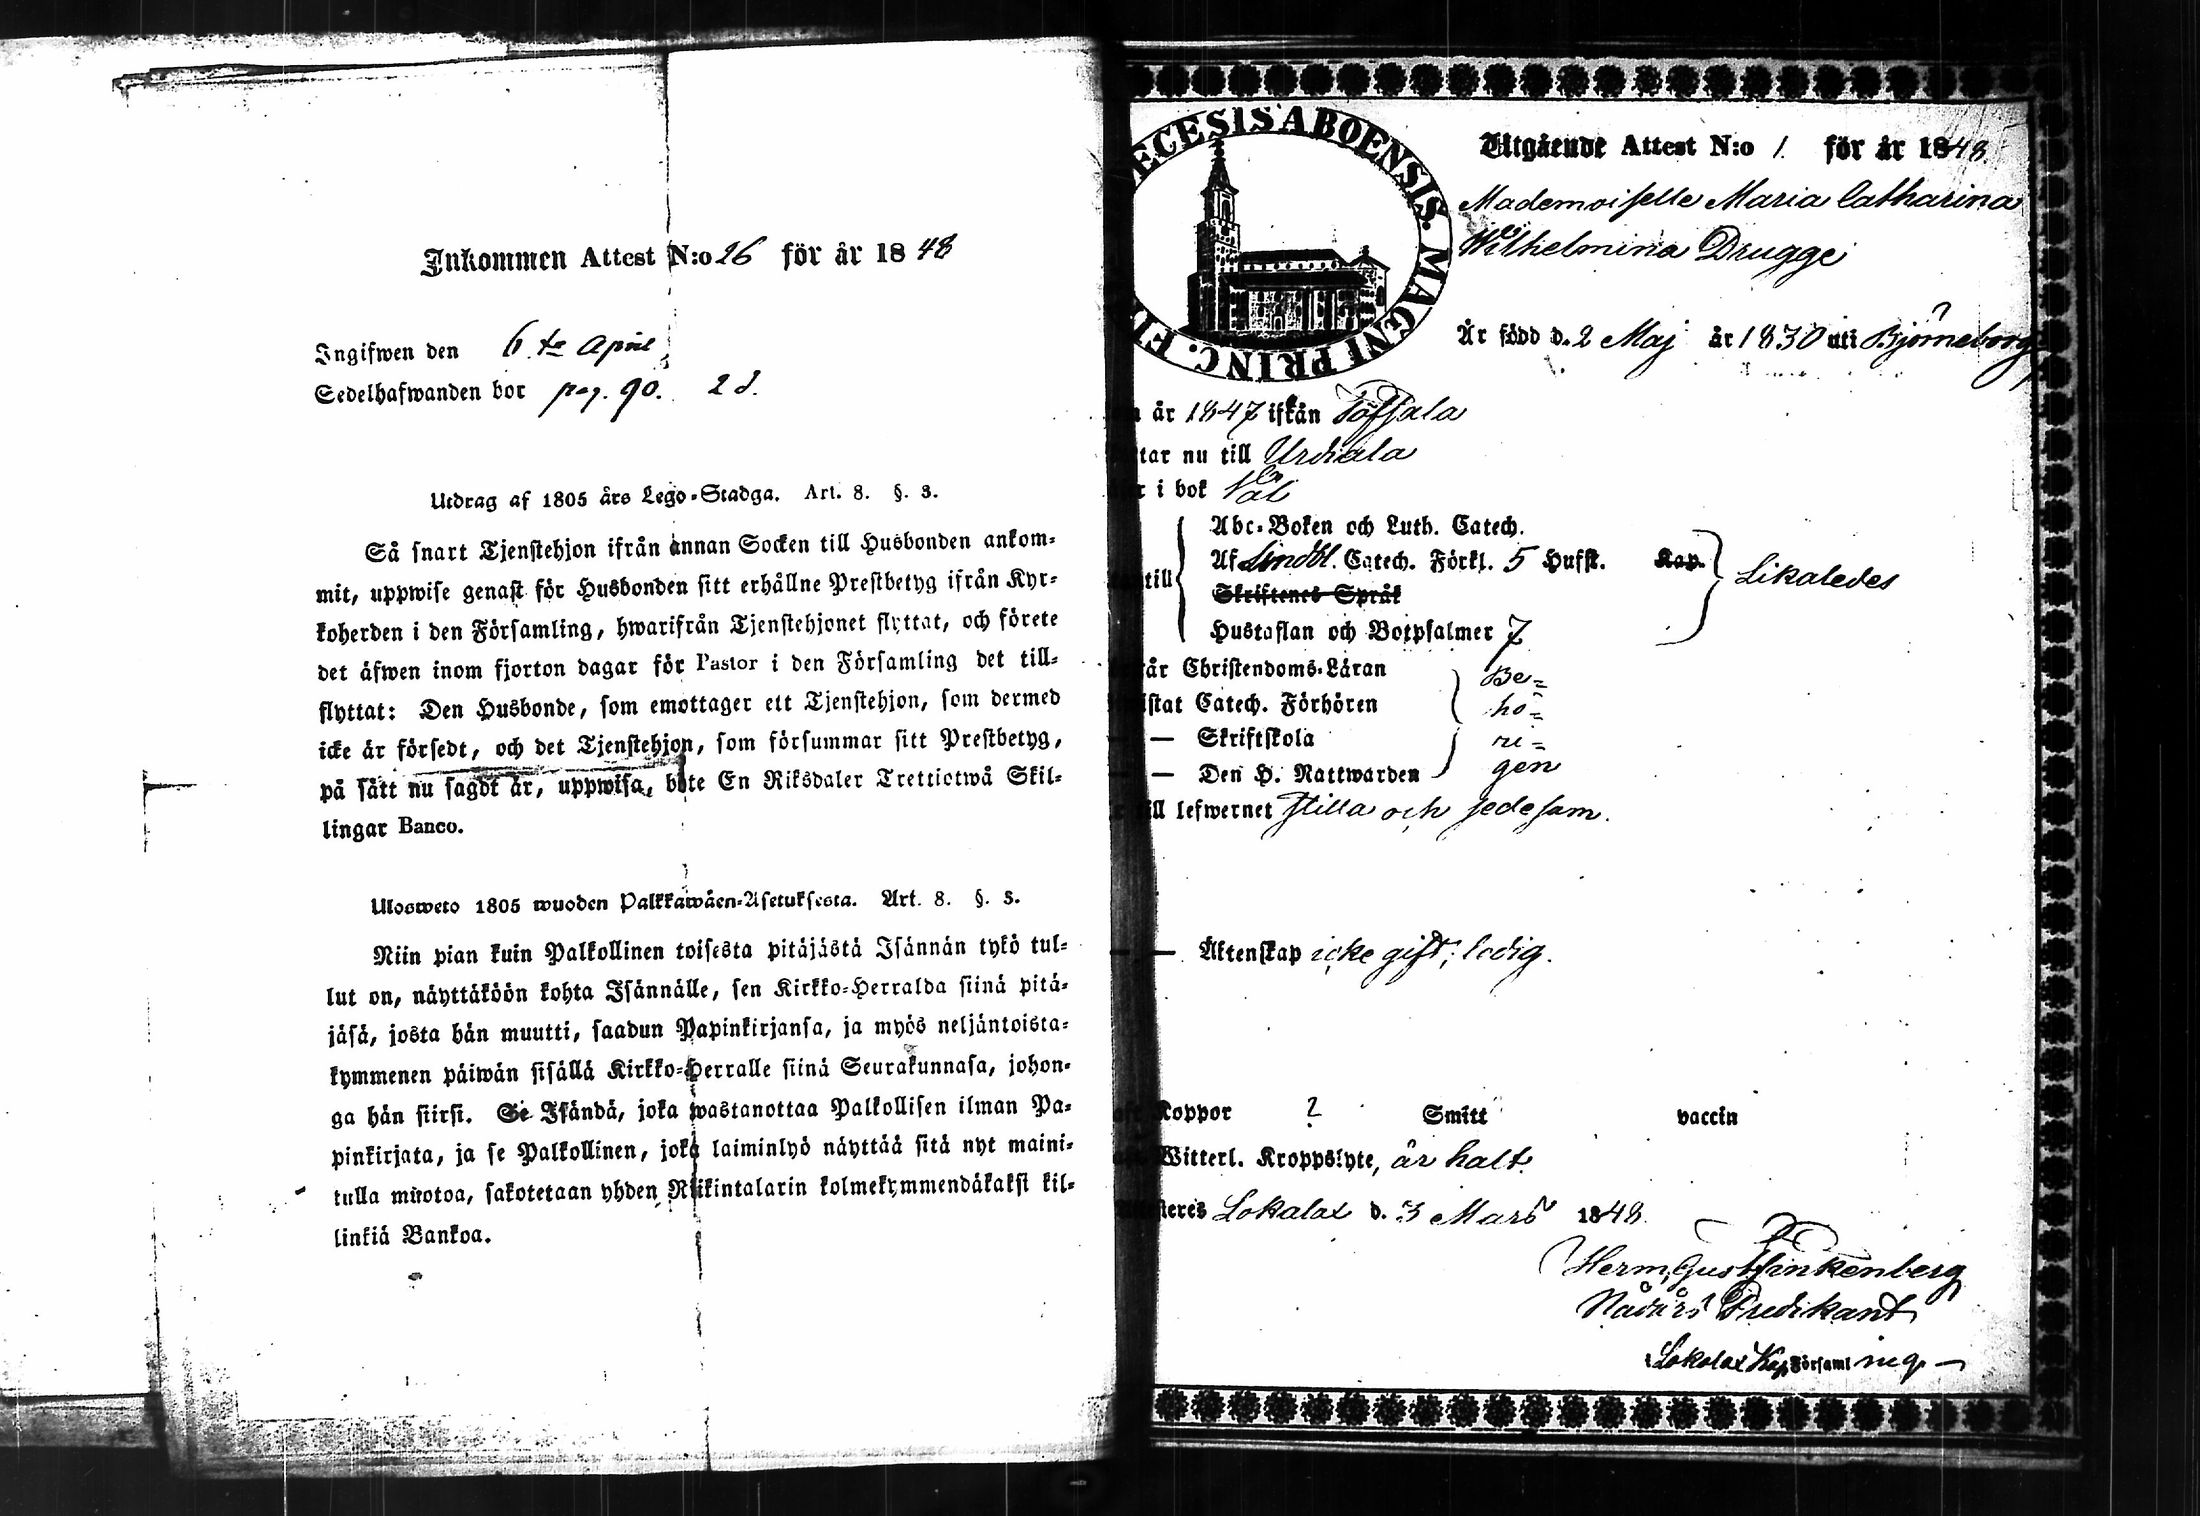 Inkommen Attest N:o 26 för år 1848
Ingifwen den 6 te April
Sedelhafwanden bor pag. 90. 2 d.
Utdrag af 1805 års Lego-Stadga. Art. 8. §. 3.
Så snart Tjenstehjon ifrån annan Socken till Husbonden ankom-
mit, uppwise genast för Husbonden sitt erhållne Prestbetyg ifrån Kyr-
koherden i den Församling, hwarifrån Tjenstehjonet flyttat, och förete
det äfwen inom fjorton dagar för Pastor i den Församling det till-
flyttat: Den Husbonde, som emottager ett Tjenstehjon, som dermed
icke är försedt, och det Tjenstehjon, som försummar sitt Prestbetyg,
på sätt nu sagdt är, uppwisa, bôte En Riksdaler Trettiotwå Skil-
lingar Banco.
Ulosweto 1805 wuoden Palkkawäen-Asetuksesta. Art. 8. §. 3.
Niin pian kuin Palkollinen toisesta pitäjästä Isännän tykö tul-
lut on, näyttäköön kohta Isännälle, sen Kirkko-Herralda siinä pitä-
jäsä, josta hän muutti, saadun Papinkirjansa, ja myös neljäntoista-
kymmenen päiwän sisällä Kirkko-Herralle siinä Seurakunnasa, johon-
ga hän siirsi. Se Isändä, joka wastanottaa Palkollisen ilman Pa-
pinkirjata, ja se Palkollinen, joka laiminlyö näyttää sitä nyt maini-
tulla muotoa, sakotetaan yhden Riikintalarin kolmekymmendäkaksi kil-
linkiä Bankoa.
ECESIS ABOENSIS. MAGNI PRINC. FI
Utgående Attest N:o 1. för år 1848.
Mademoiselle Maria Catharina
Wilhelmina Drugge
Är född d. 2 Maj år 1830 uti Björneborg
år 1847 ifrån Töfsala
tar nu till Urdiala
i bok Väl
Abc-Boken och Luth. Catech.
Af Lindbl. Catech. Förkl. 5 Hufst. Kap. Likaledes
till
Skriftenes Språk
Hustaflan och Botpsalmer 7
år Christendoms-Läran Be-
istat Catech. Förhören hö-
— Skriftskola ri-
— Den H. Nattwarden gen
till lefwernet stilla och sedesam.
— — Äktenskap icke gift; ledig.
Koppor ? Smitt vaccin
Witterl. Kroppslyte, är halt.
steres Lokalax d. 3 Mars 1848.
Herm. Gust. Finkenberg
Nådårs Predikant
Lokalax Kap. Församling. —